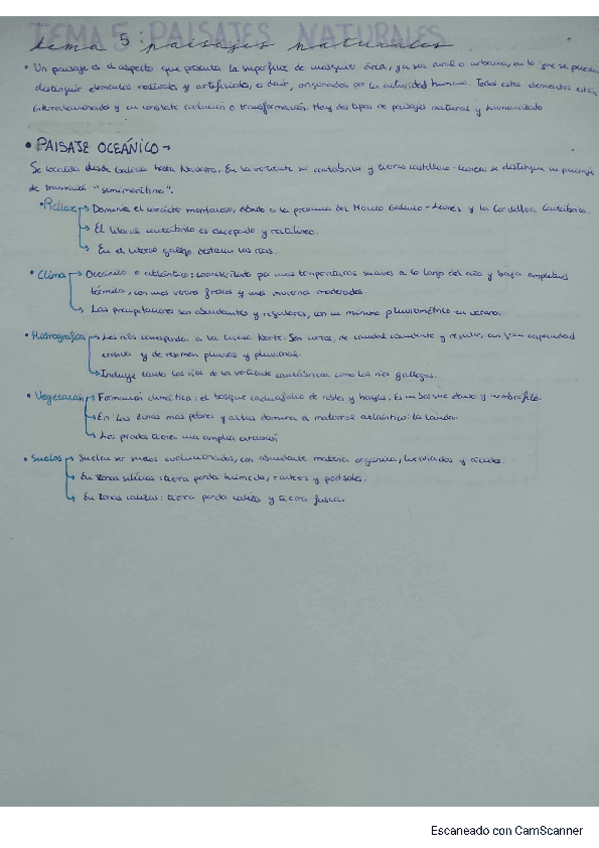 TEMA 5: PAISAJES NATURALES
tema 5: paisajes naturales
• Un paisaje es el aspecto que presenta la superficie de cualquier área, ya sea rural o urbana, en lo que se pueden
distinguir elementos naturales y artificiales, es decir, originados por la actividad humana. Todos estos elementos están
interrelacionados y en constante evolución o transformación. Hay dos tipos de paisajes natural y humanizado
• PAISAJE OCEÁNICO →
Se localiza desde Galicia hasta Navarra. En la vertiente sur cantábrica y tierras castellano-leonesas se distingue un paisaje
de transición "semimarítimo".
• Relieve → Domina el carácter montañoso, debido a la presencia del Macizo Galaico-Leonés y la Cordillera Cantábrica.
→ El litoral cantábrico es escarpado y rectilíneo.
→ En el litoral gallego destacan las rías.
• Clima → Oceánico o atlántico: caracterizado por unas temperaturas suaves a lo largo del año y baja amplitud
térmica, con unos veranos frescos y unos inviernos moderados.
→ Las precipitaciones son abundantes y regulares, con un mínimo pluviométrico en verano.
• Hidrografía → Los ríos corresponden a la Cuenca Norte. Son cortos, de caudal abundante y regular, con gran capacidad
erosiva y de régimen pluvial y pluvionival.
→ Incluye tanto los ríos de la vertiente cantábrica como los ríos gallegos.
• Vegetación → Formación climática: el bosque caducifolio de robles y hayas. Es un bosque denso y umbrófilo.
→ En las zonas más pobres y altas domina el matorral atlántico: la landa.
→ Los prados tienen una amplia extensión
• Suelos → Suelen ser suelos evolucionados, con abundante materia orgánica, lixiviados y ácidos.
→ En zonas silíceas: tierra parda húmeda, rankers y podsoles.
→ En zonas calizas: tierra parda caliza y tierra fusca.
Escaneado con CamScanner